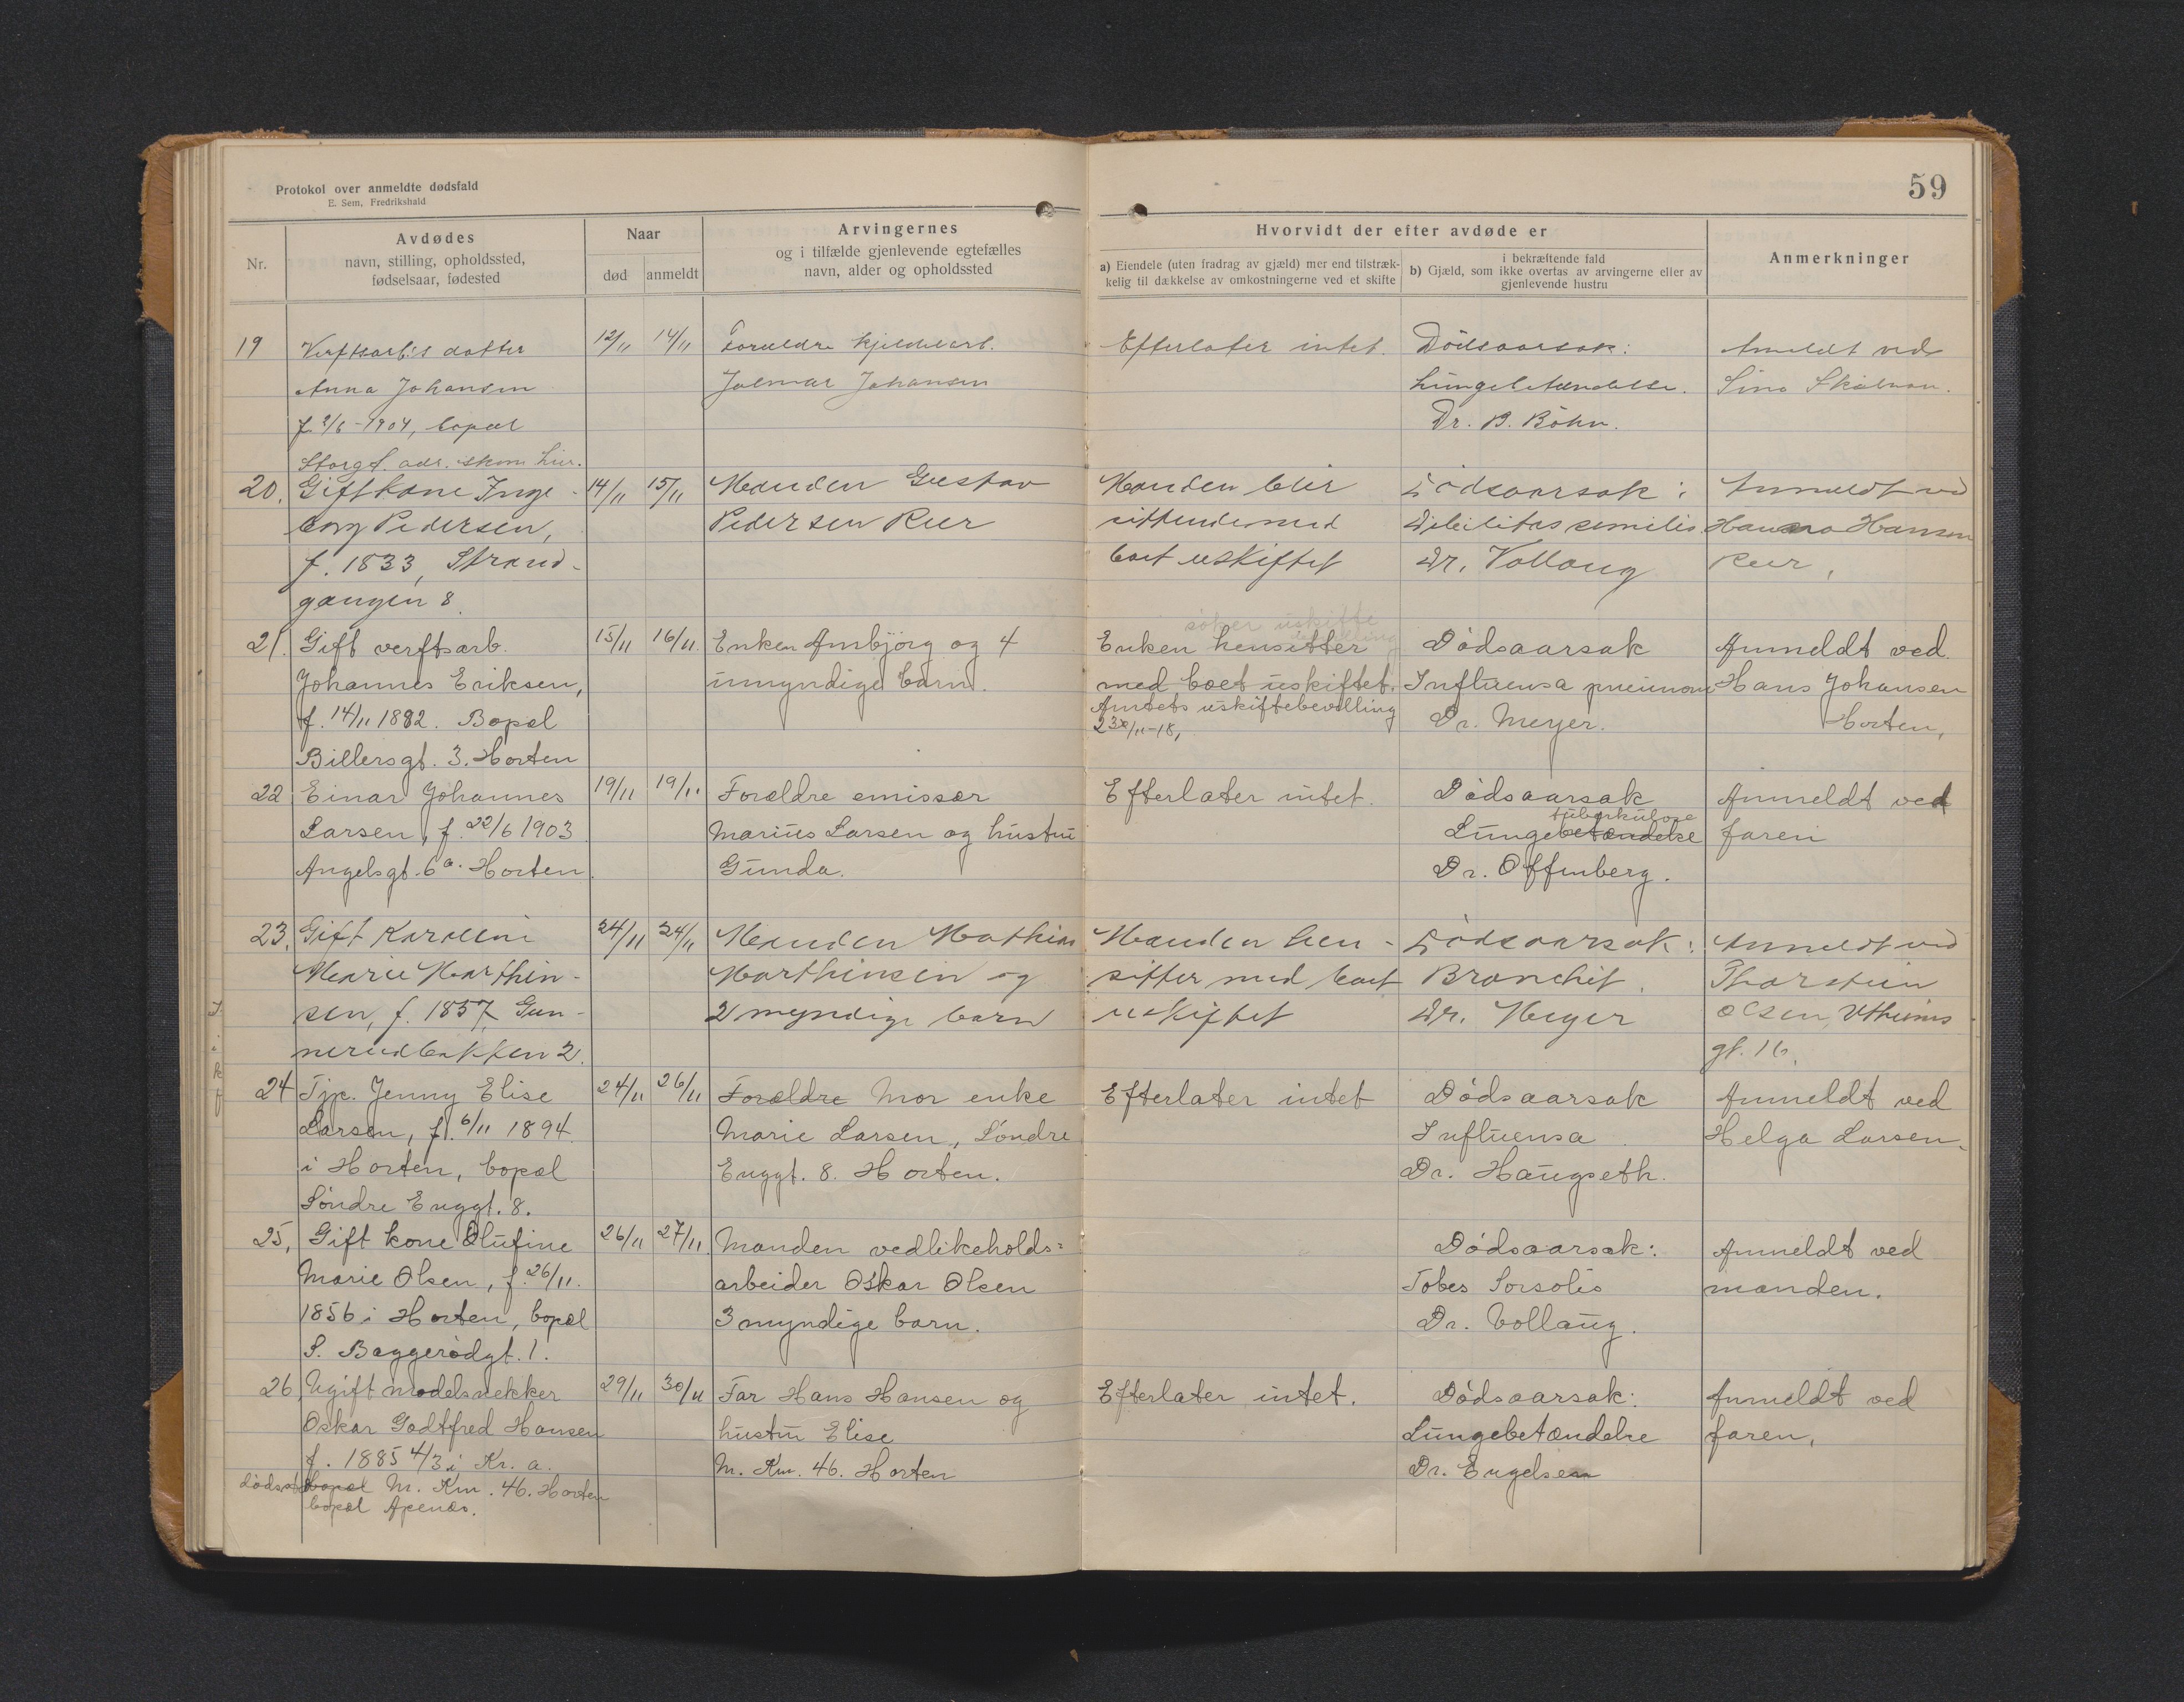 Protokol over anmeldte dødsfald
E. Sem, Fredrikshald
59
Nr.
Avdødes
navn, stilling, opholdssted,
fødselsaar, fødested
Naar
død
anmeldt
Arvingernes
og i tilfælde gjenlevende egtefælles
navn, alder og opholdssted
Hvorvidt der efter avdøde er
a) Eiendele (uten fradrag av gjæld) mer end tilstræk-
kelig til dækkelse av omkostningerne ved et skifte
i bekræftende fald
b) Gjæld, som ikke overtas av arvingerne eller av
gjenlevende hustru
Anmerkninger
19
Verftsarb.s datter
Anna Johansen
f. 2/6-1904, bopæl
Storgt.
12/11
14/11
Forældre kjeldelarb.
Jalmar Johansen
Efterlater intet.
Dödsaarsak:
Lungebetændelse.
Dr. B. Böhn.
Anmeldt ved
20.
Gift kone Inge-
borg Pedersen,
f. 1833, Strand-
gangen 8.
14/11
15/11
Manden Gustav
Pedersen Rør
Manden blir
sittende med
boet uskiftet
Dödsaarsak:
Debilitas senilis
Dr. Vollaug
Anmeldt ved
Hanna Hansen
Rør.
21.
Gift verftsarb.
Johannes Eriksen,
f. 14/11 1882. Bopæl
Billersgt. 3. Horten
15/11
16/11.
Enken Ambjörg og 4
umyndige barn.
søker uskifte
Enken hensitter
med boet uskiftet.
Amtets uskiftebevilling
23/11-18,
Dödsaarsak
Influensa pneumoni
Dr. Meyer.
Anmeldt ved.
Hans Johansen
Horten.
22
Einar Johannes
Larsen, f. 22/6 1903
Angelsgt. 6a. Horten.
19/11
19/11
Forældre emissær
Marius Larsen og hustru
Gunda.
Efterlater intet.
Dödsaarsak
tuberkulose
Lungebetændelse
Dr. Offenberg.
Anmeldt ved
faren
23.
Gift Karoline
Marie Marthin-
sen, f. 1857, Gun-
nerudbakken 2.
24/11
24/11
Manden Mathias
Marthinsen og
2 myndige barn
Manden hen-
sitter med boet
uskiftet
Dödsaarsak:
Bronchit.
Dr. Meyer
Anmeldt ved
Thorstein
Olsen,
gt. 16.
24
Tjp. Jenny Elise
Larsen, f. 6/11 1894.
i Horten, bopæl
Söndre Enggt. 8.
24/11
26/11
Forældre Mor enke
Marie Larsen, Söndre
Enggt. 8. Horten.
Efterlater intet
Dödsaarsak
Influensa.
Dr. Haugseth.
Anmeldt ved
Helga Larsen.
25.
Gift kone Olufine
Marie Olsen, f. 26/11.
1856 i Horten, bopæl
S. Baggerödgt. 1.
26/11
27/11.
Manden vedlikeholds=
arbeider Oskar Olsen
3 myndige barn.
Dödsaarsak:
Tobes Sorsolis
Dr. Vollaug.
Anmeldt ved
manden.
26
Ugift modelsnekker
Oskar Godtfred Hansen
f. 1885 4/3 i Kr. a.
bopæl M. Km. 46. Horten
bopæl Apenæs.
29/11
30/11
Far Hans Hansen og
hustru Elise
M. Km. 46. Horten
Efterlater intet.
Dödsaarsak:
Lungebetændelse
Dr. Engelsen
Anmeldt ved
faren.